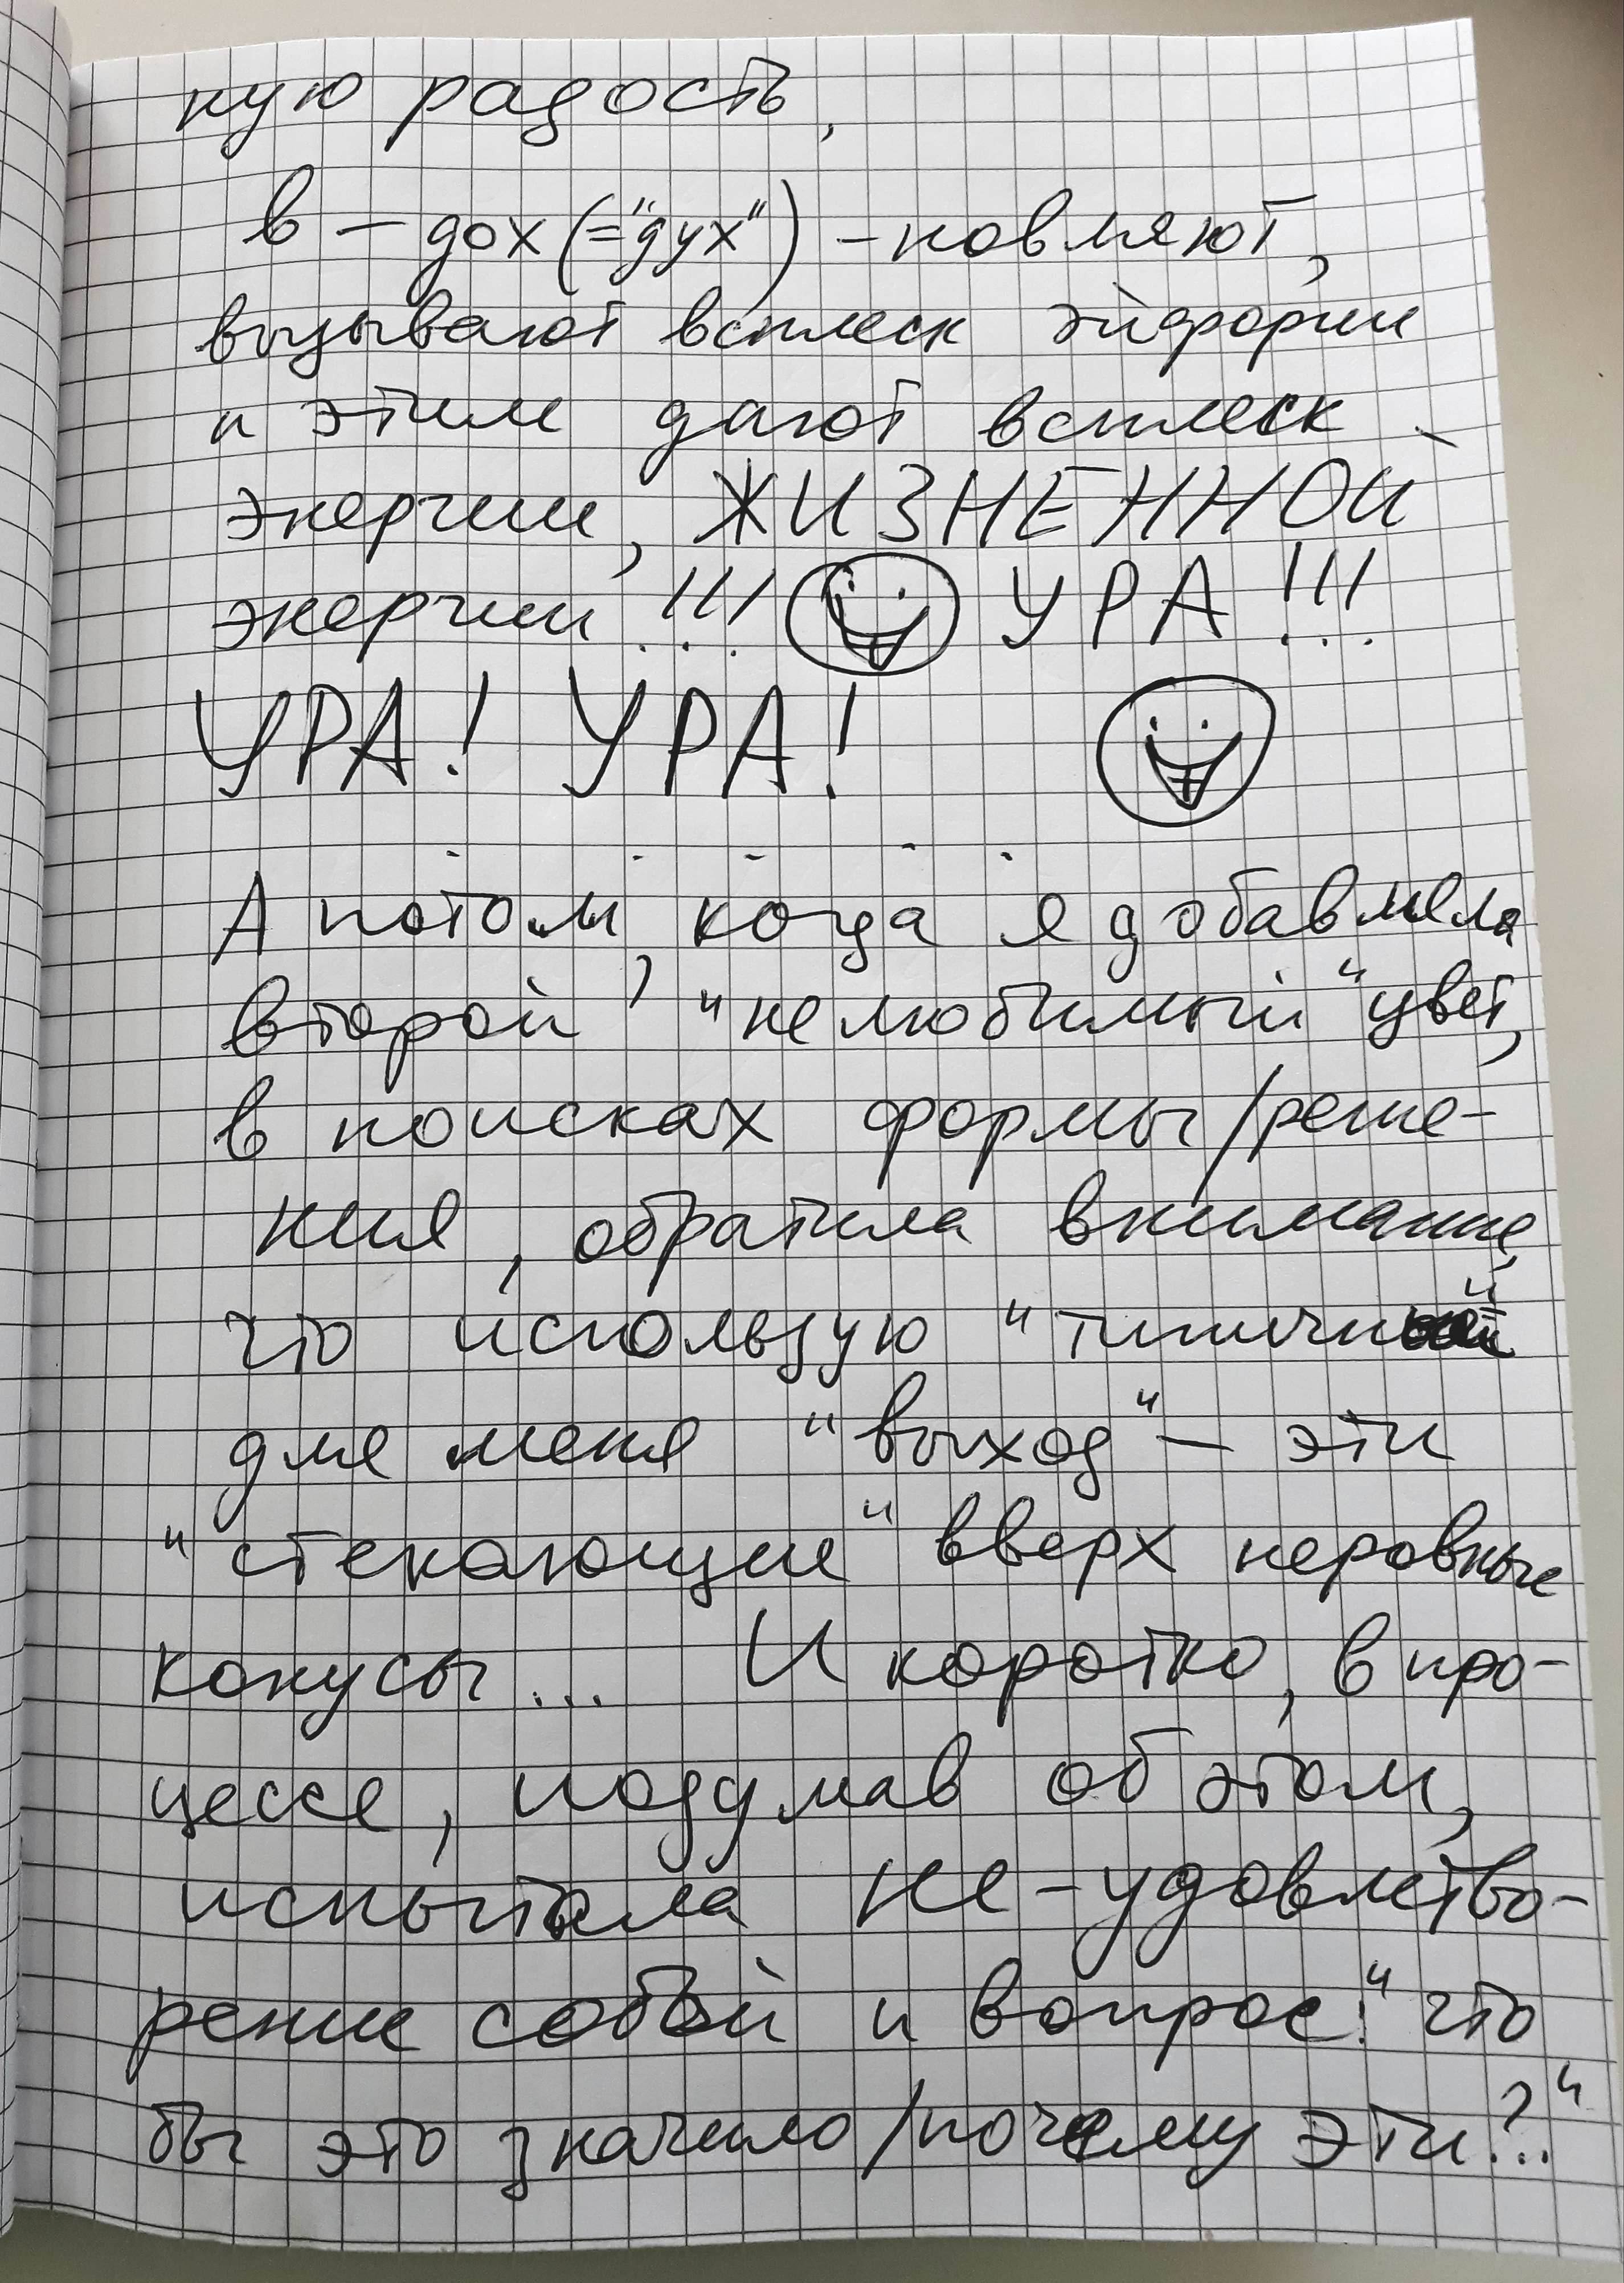 ную радость,
в – дох (="дух") – новляют,
вызывают всплеск эйфории
и этим дают всплеск
энергии, ЖИЗНЕННОЙ
энергии!!! УРА!!!
УРА! УРА!
А потом, когда я добавляла
второй, "нелюбимый" цвет,
в поисках формы/реше-
ния, обратила внимание,
что использую "типичный
для меня "выход" – эти
"стекающие" вверх неровные
конусы... И коротко, в про-
цессе, подумав об этом,
испытала не-удовлетво-
рение собой и вопрос: "что
бы это значило/почему эти?.."